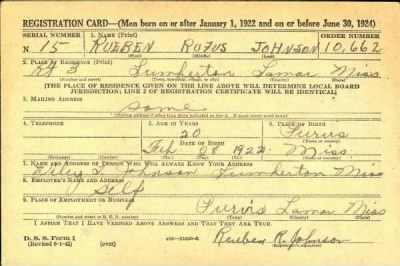 REGISTRATION CARD—(Men born on or after January 1, 1922 and on or before June 30, 1924)
SERIAL NUMBER 1. NAME (Print) ORDER NUMBER
N 15 RUEBEN RUFUS JOHNSON 10,662
(First) (Middle) (Last)
2. PLACE OF RESIDENCE (Print)
Rt 3 Lumberton Lamar Miss
(Number and street) (Town, township, village, or city) (County) (State)
[THE PLACE OF RESIDENCE GIVEN ON THE LINE ABOVE WILL DETERMINE LOCAL BOARD
JURISDICTION; LINE 2 OF REGISTRATION CERTIFICATE WILL BE IDENTICAL]
3. MAILING ADDRESS
Same
4. TELEPHONE 5. AGE IN YEARS 6. PLACE OF BIRTH
20 Purvis
DATE OF BIRTH (Town or county)
Feb 28 1922 Miss.
(Exchange) (Number) (Mo.) (Day) (Yr.) (State or country)
7. NAME AND ADDRESS OF PERSON WHO WILL ALWAYS KNOW YOUR ADDRESS
Johnson Lumberton Miss
8. EMPLOYER'S NAME AND ADDRESS
Self
9. PLACE OF EMPLOYMENT OR BUSINESS
Purvis Lamar Miss
(Number and street or R. F. D. number) (Town) (County) (State)
I AFFIRM THAT I HAVE VERIFIED ABOVE ANSWERS AND THAT THEY ARE TRUE.
D. S. S. Form 1
(Revised 6-1-42) (over) Reuben R. Johnson